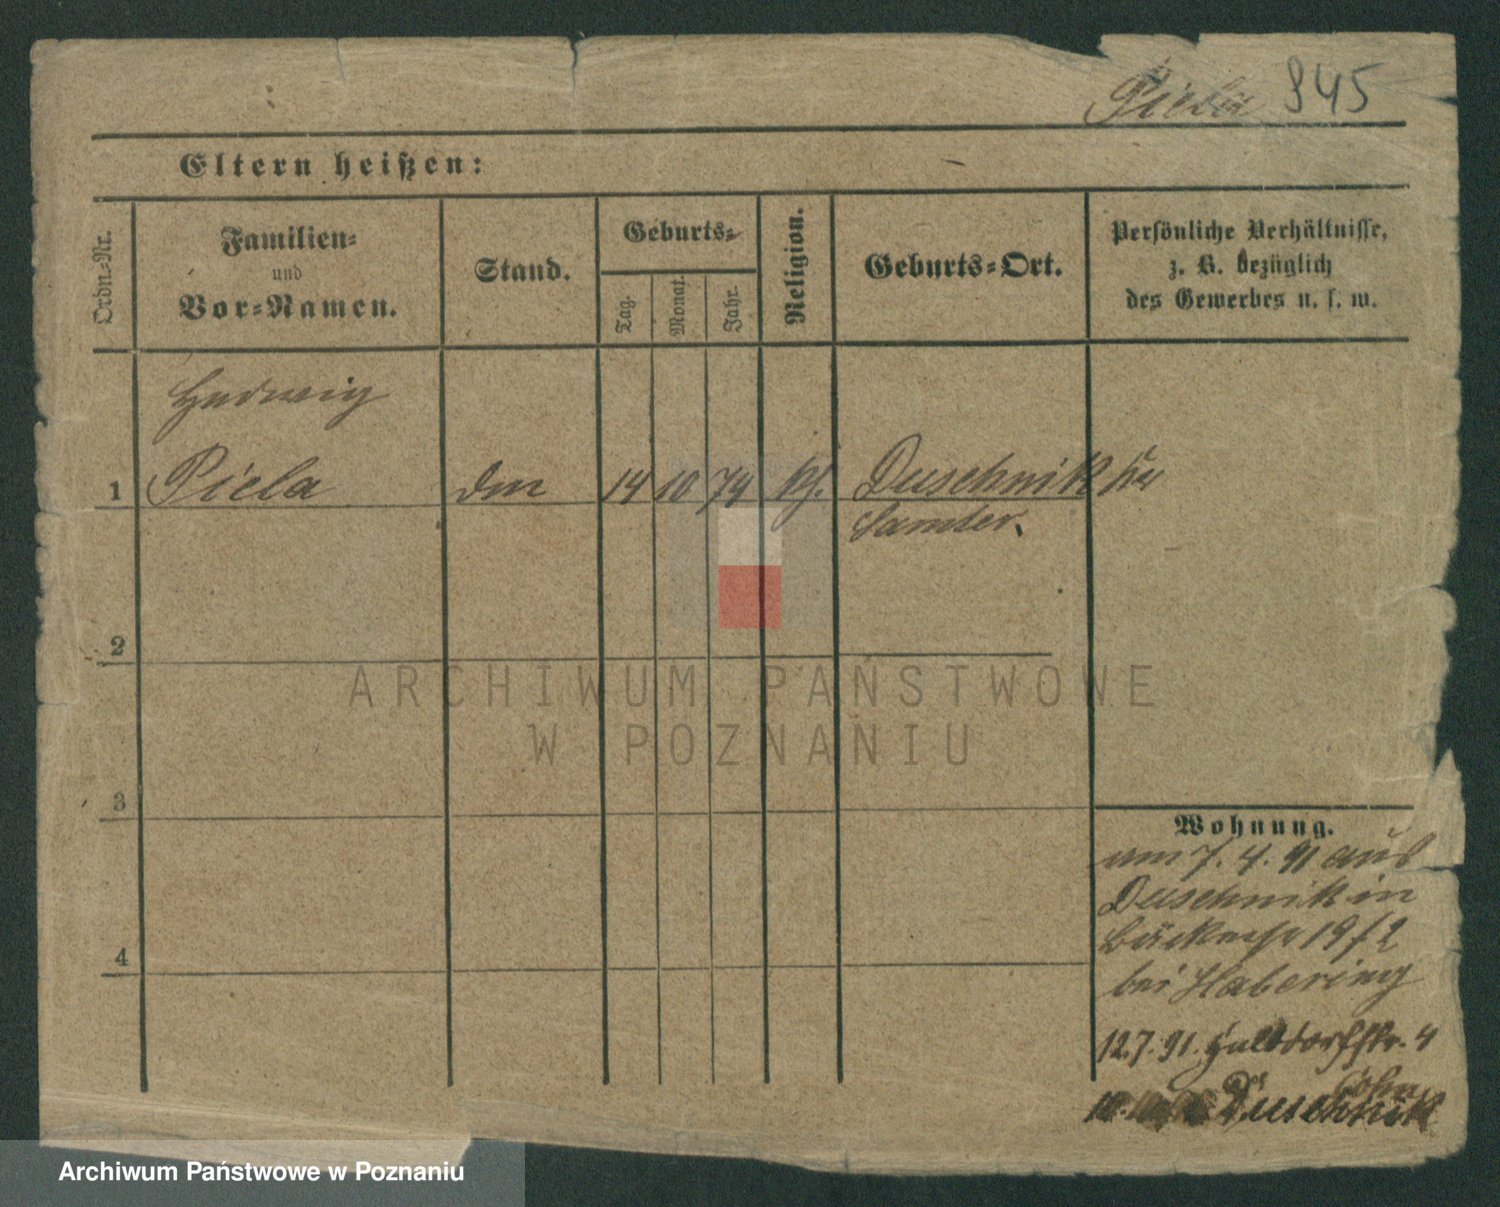 Piela 945
Eltern heißen:
Ordn.-Nr.
Familien-
und
Vor-Namen.
Stand.
Geburts-
Tag.
Monat.
Jahr.
Religion.
Geburts-Ort.
Persönliche Verhältnisse,
z. B. bezüglich
des Gewerbes u. s. w.
Hedwig
1 Piela den 14 10 74 kf. Duschnik Kr
Samter.
2
3
4
Wohnung.
am 7. 4. 91 aus
Duschnik in
19/2
bei Habering
12.7.91. 4
Cohn
Duschnik
ARCHIWUM PAŃSTWOWE
W POZNANIU
Archiwum Państwowe w Poznaniu